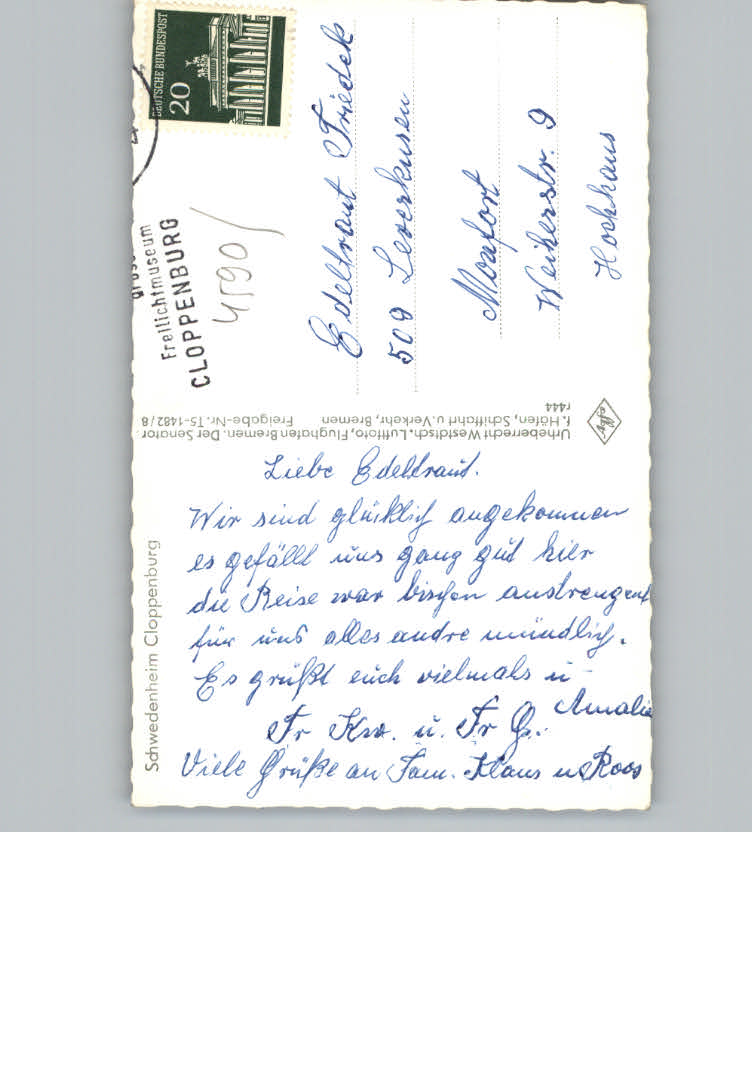 DEUTSCHE BUNDESPOST
20
Freilichtmuseum
CLOPPENBURG
4590/
Edeltraut Friedek
509 Leverkusen
Monfort
Weiherstr. 9
Hochhaus
Urheberrecht Westdtsch. Luftfoto, Flughafen Bremen. Der Senator
f. Häfen, Schiffahrt u. Verkehr, Bremen Freigabe-Nr. T5-1482/8
r444
effbi
Schwedenheim Cloppenburg
Liebe Edeltraut.
Wir sind glücklich angekommen
es gefällt uns ganz gut hier
die Reise war bischen anstrengent
für uns alles andre mündlich.
Es grüßt euch vielmals u
Amalie
Fr u. Fr G.
Viele Grüße an Fam. Klaus u Roos